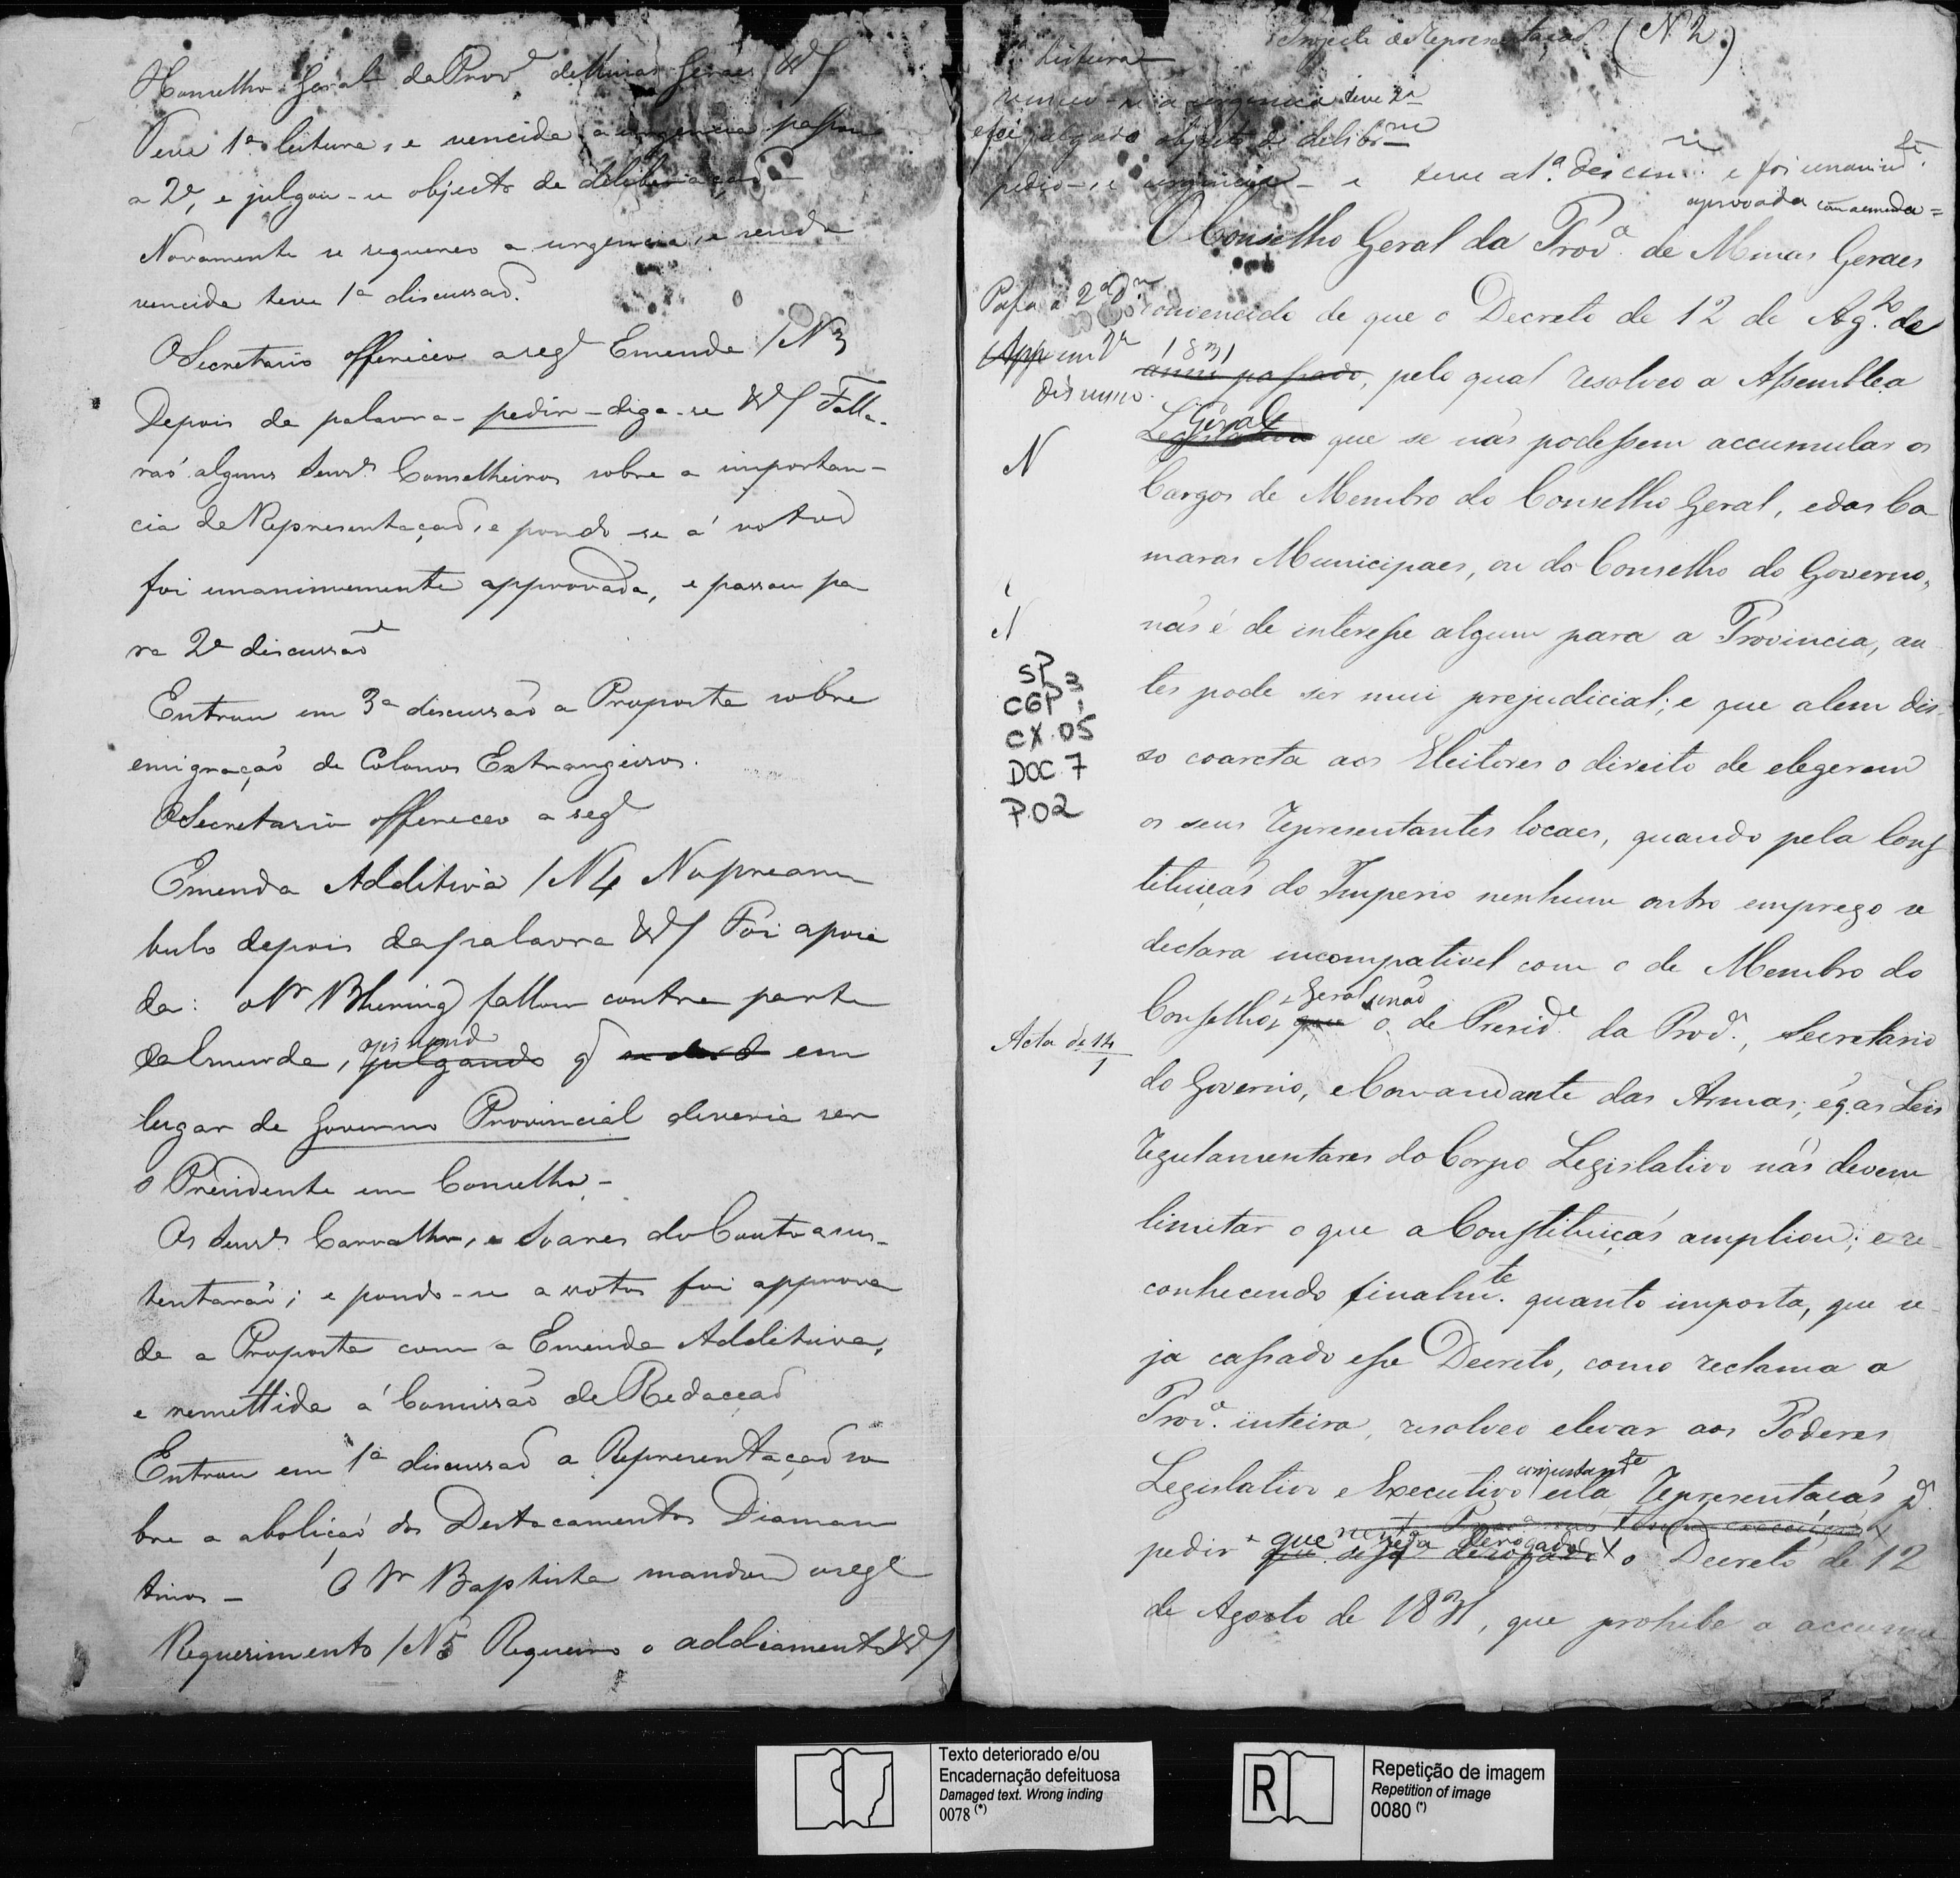 Conselho Geral da Prov.ª de Minas Geraes &/
Teve 1ª leitura, e vencida a urgencia passou
a 2ª, e julgou-se objecto de deliberação
Novamente se requereo a urgencia, e sendo
vencida teve 1ª discussaõ.
O Secretario offereceo a seg.e Emenda /N 3
Depois da palavra - pedir - diga-se &/ Falla-
raõ alguns Senr.s Conselheiros sobre a importan-
cia da Representaçaõ, e pondo-se á votos
foi unanimemente approvada, e passou pa
ra 2ª discussaõ
Entrou em 3ª discussaõ a Proposta sobre
emigraçaõ de Colonos Extrangeiros.
O Secretario offereceo a seg.e
Emenda Additiva /N 4 No pream
bulo depois da palavra &/ Foi apoia
da: o Sr Bhering fallou contra parte
da Emenda, opinando julgando q̃ em
lugar de Governo Provincial deveria ser
o Presidente em Conselho -
Os Senr.s Carvalho, e Soares do Couto a sus-
tentaraõ; e pondo-se a votos foi approva
da a Proposta com a Emenda Additiva,
e remettida á Comissaõ de Redacçaõ
Entrou em 1ª discussaõ a Representaçaõ so
bre a aboliçaõ dos Destacamentos Diaman
tinos - O Sr Baptista mandou o seg.e
Requerimento /N 5 Requeiro o addiamento &/
Projecto de Representaçaõ (N 2)
Leitura
venceo-se a urgencia teve 2ª
e foi julgado objecto de delibr.m
pedio-se urgencia - e teve a 1ª discm e foi unanime.te
aprovada com a emenda =
O Conselho Geral da Prov.ª de Minas Geraes
Passa a 2ª D.m
convencido de que o Decreto de 12 de Ag.to de
App em 2ª
Discussão.
1831
anno passado, pelo qual resolveo a Assemblea
Geral
Legislativa que se naõ podessem accumular os
N
Cargos de Membro do Conselho Geral, e das Ca
maras Municipaes, ou do Conselho do Governo,
N
naõ é de interesse algum para a Provincia, an
SP
CGP 1
CX. 05
DOC. 7
P. 02
tes pode ser mui prejudicial; e que alem dis-
so coarcta aos Eleitores o direito de elegerem
os seus Representantes locaes, quando pela Cons
tituiçaõ do Imperio nenhum outro emprego se
declara incompativel com o de Membro do
Geral, senaõ
Conselho, que o de Presid.e da Prov.ª, Secretario
Acta de 14
1
do Governo, e Comandante das Armas; e q̃ as Leis
Regulamentares do Corpo Legislativo naõ devem
limitar o que a Constituiçaõ ampliou; e re-
conhecendo finalm.te quanto importa, que se-
ja cassado esse Decreto, como reclama a
Prov.ª inteira, resolveo elevar aos Poderes
conjuntam.te
Legislativo e Executivo esta Representaçaõ p.ª
nesta Prov.ª naõ tenha execuçaõ
pedir que seja derogado
que seja derogado o Decreto de 12
de Agosto de 1831, que prohibe a accumu
Texto deteriorado e/ou
Encadernação defeituosa
Damaged text. Wrong inding
0078 (*)
R
Repetição de imagem
Repetition of image
0080 (*)